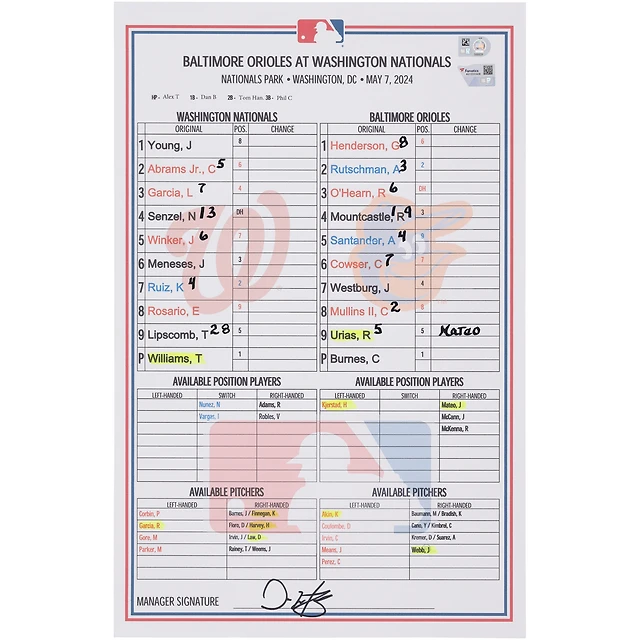 BALTIMORE ORIOLES AT WASHINGTON NATIONALS
NATIONALS PARK • WASHINGTON, DC • MAY 7, 2024
HP- Alex T 1B- Dan B 2B- Tom Han. 3B- Phil C
WASHINGTON NATIONALS BALTIMORE ORIOLES
ORIGINAL POS. CHANGE ORIGINAL POS. CHANGE
1 Young, J 8 1 Henderson, G 8 6
2 Abrams Jr., C 5 6 2 Rutschman, A 3 2
3 Garcia, L 7 4 3 O'Hearn, R 6 DH
4 Senzel, N 13 DH 4 Mountcastle, R 19 3
5 Winker, J 6 7 5 Santander, A 4 9
6 Meneses, J 3 6 Cowser, C 7 7
7 Ruiz, K 4 2 7 Westburg, J 4
8 Rosario, E 9 8 Mullins II, C 2 8
9 Lipscomb, T 28 5 9 Urias, R 5 5 Mateo
P Williams, T 1 P Burnes, C 1
AVAILABLE POSITION PLAYERS AVAILABLE POSITION PLAYERS
LEFT-HANDED SWITCH RIGHT-HANDED LEFT-HANDED SWITCH RIGHT-HANDED
Nunez, N Adams, R Kjerstad, H Mateo, J
Vargas, I Robles, V McCann, J
McKenna, R
AVAILABLE PITCHERS AVAILABLE PITCHERS
LEFT-HANDED RIGHT-HANDED LEFT-HANDED RIGHT-HANDED
Corbin, P Barnes, J / Finnegan, K Akin, K Baumann, M / Bradish, K
Garcia, R Floro, D / Harvey, H Coulombe, D Cano, Y / Kimbrel, C
Gore, M Irvin, J / Law, D Irvin, C Kremer, D / Suarez, A
Parker, M Rainey, T / Weems, J Means, J Webb, J
Perez, C
MANAGER SIGNATURE